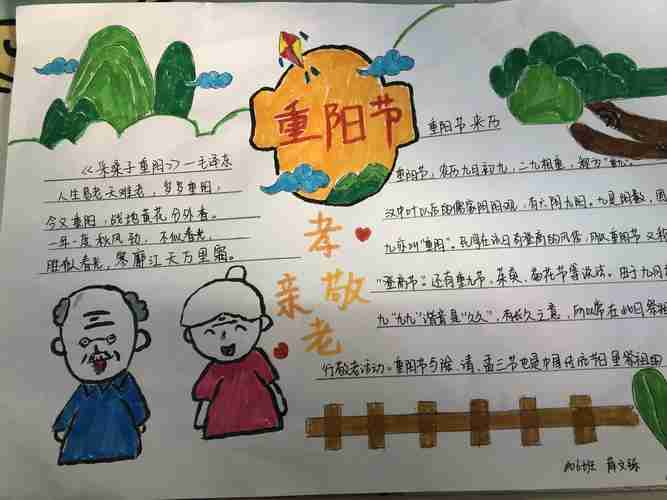 重阳节
《采桑子重阳》—毛泽东
人生易老天难老，岁岁重阳，
今又重阳，战地黄花分外香。
一年一度秋风劲，不似春光，
胜似春光，寥廓江天万里霜。
孝敬
亲老
重阳节来历
重阳节，农历九月初九，二九相重，称为"重九"。
汉中叶以后的儒家阴阳观，有六阴九阳。九是阳数，因
九亦叫"重阳"。民间在该日有登高的风俗，所以重阳节又称
"登高节"。还有重九节、茱萸、菊花节等说法。由于九月
九"九九"谐音是"久久"，有长久之意，所以常在此日祭祖
行敬老活动。重阳节与除、清、盂三节也是中国传统节日里祭祖的